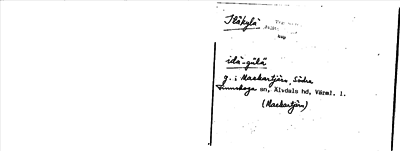 Iläkylä
idä-gülä
g. i Mackartjärn, Södra
Finnskoga sn, Älvdals hd, Värml. l.
(Mackartjärn)